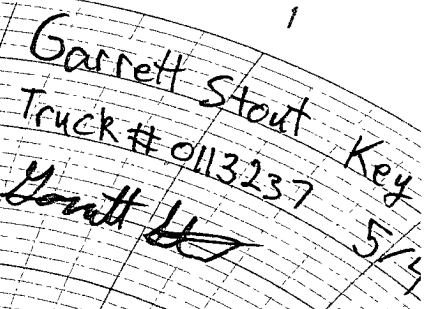 1
Garrett Stout Key
Truck # 0113237 5/4
Garrett Stout